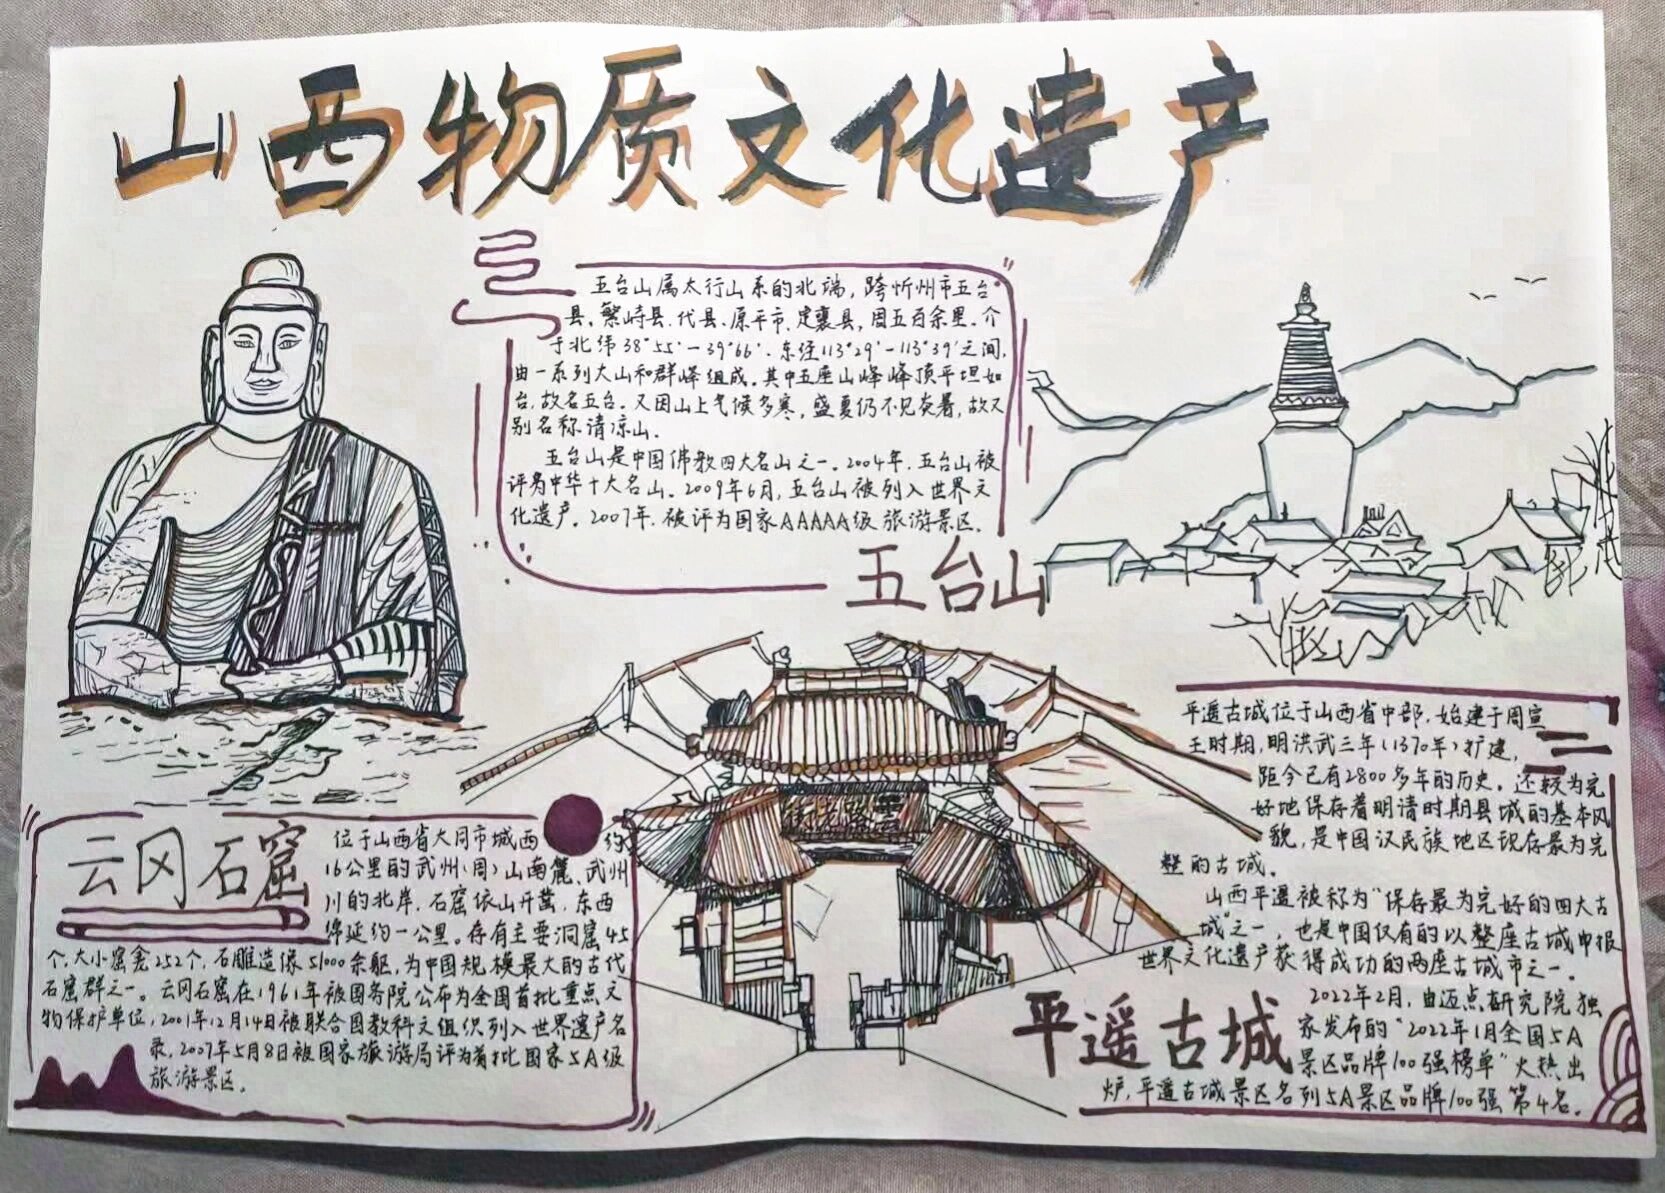 山西物质文化遗产
五台山属太行山系的北端，跨忻州市五台
县、繁峙县、代县、原平市、定襄县，周五百余里。介
于北纬38°55′-39°66′、东经113°29′-113°39′之间，
由一系列大山和群峰组成。其中五座山峰峰顶平坦如
台，故名五台。又因山上气候多寒，盛夏仍不见炎暑，故又
别名称请凉山。
五台山是中国佛教四大名山之一。2004年，五台山被
评为中华十大名山。2009年6月，五台山被列入世界文
化遗产。2007年，被评为国家AAAAA级旅游景区。
五台山
云冈石窟
位于山西省大同市城西约
16公里的武州(周)山南麓、武州
川的北岸，石窟依山开凿，东西
绵延约一公里。存有主要洞窟45
个，大小窟龛252个，石雕造像51000余躯，为中国规模最大的古代
石窟群之一。云冈石窟在1961年被国务院公布为全国首批重点文
物保护单位，2001年12月14日被联合国教科文组织列入世界遗产名
录，2007年5月8日被国家旅游局评为首批国家5A级
旅游景区。
平遥古城位于山西省中部，始建于周宣
王时期，明洪武三年(1370年)扩建，
距今已有2800多年的历史。还较为完
好地保存着明请时期县城的基本风
貌，是中国汉民族地区现存最为完
整的古城。
山西平遥被称为“保存最为完好的四大古
城”之一，也是中国仅有的以整座古城申报
世界文化遗产获得成功的两座古城市之一。
平遥古城
2022年2月，由迈点研究院独
家发布的“2022年1月全国5A
景区品牌100强榜单”火热出
炉，平遥古城景区名列5A景区品牌100强第4名。